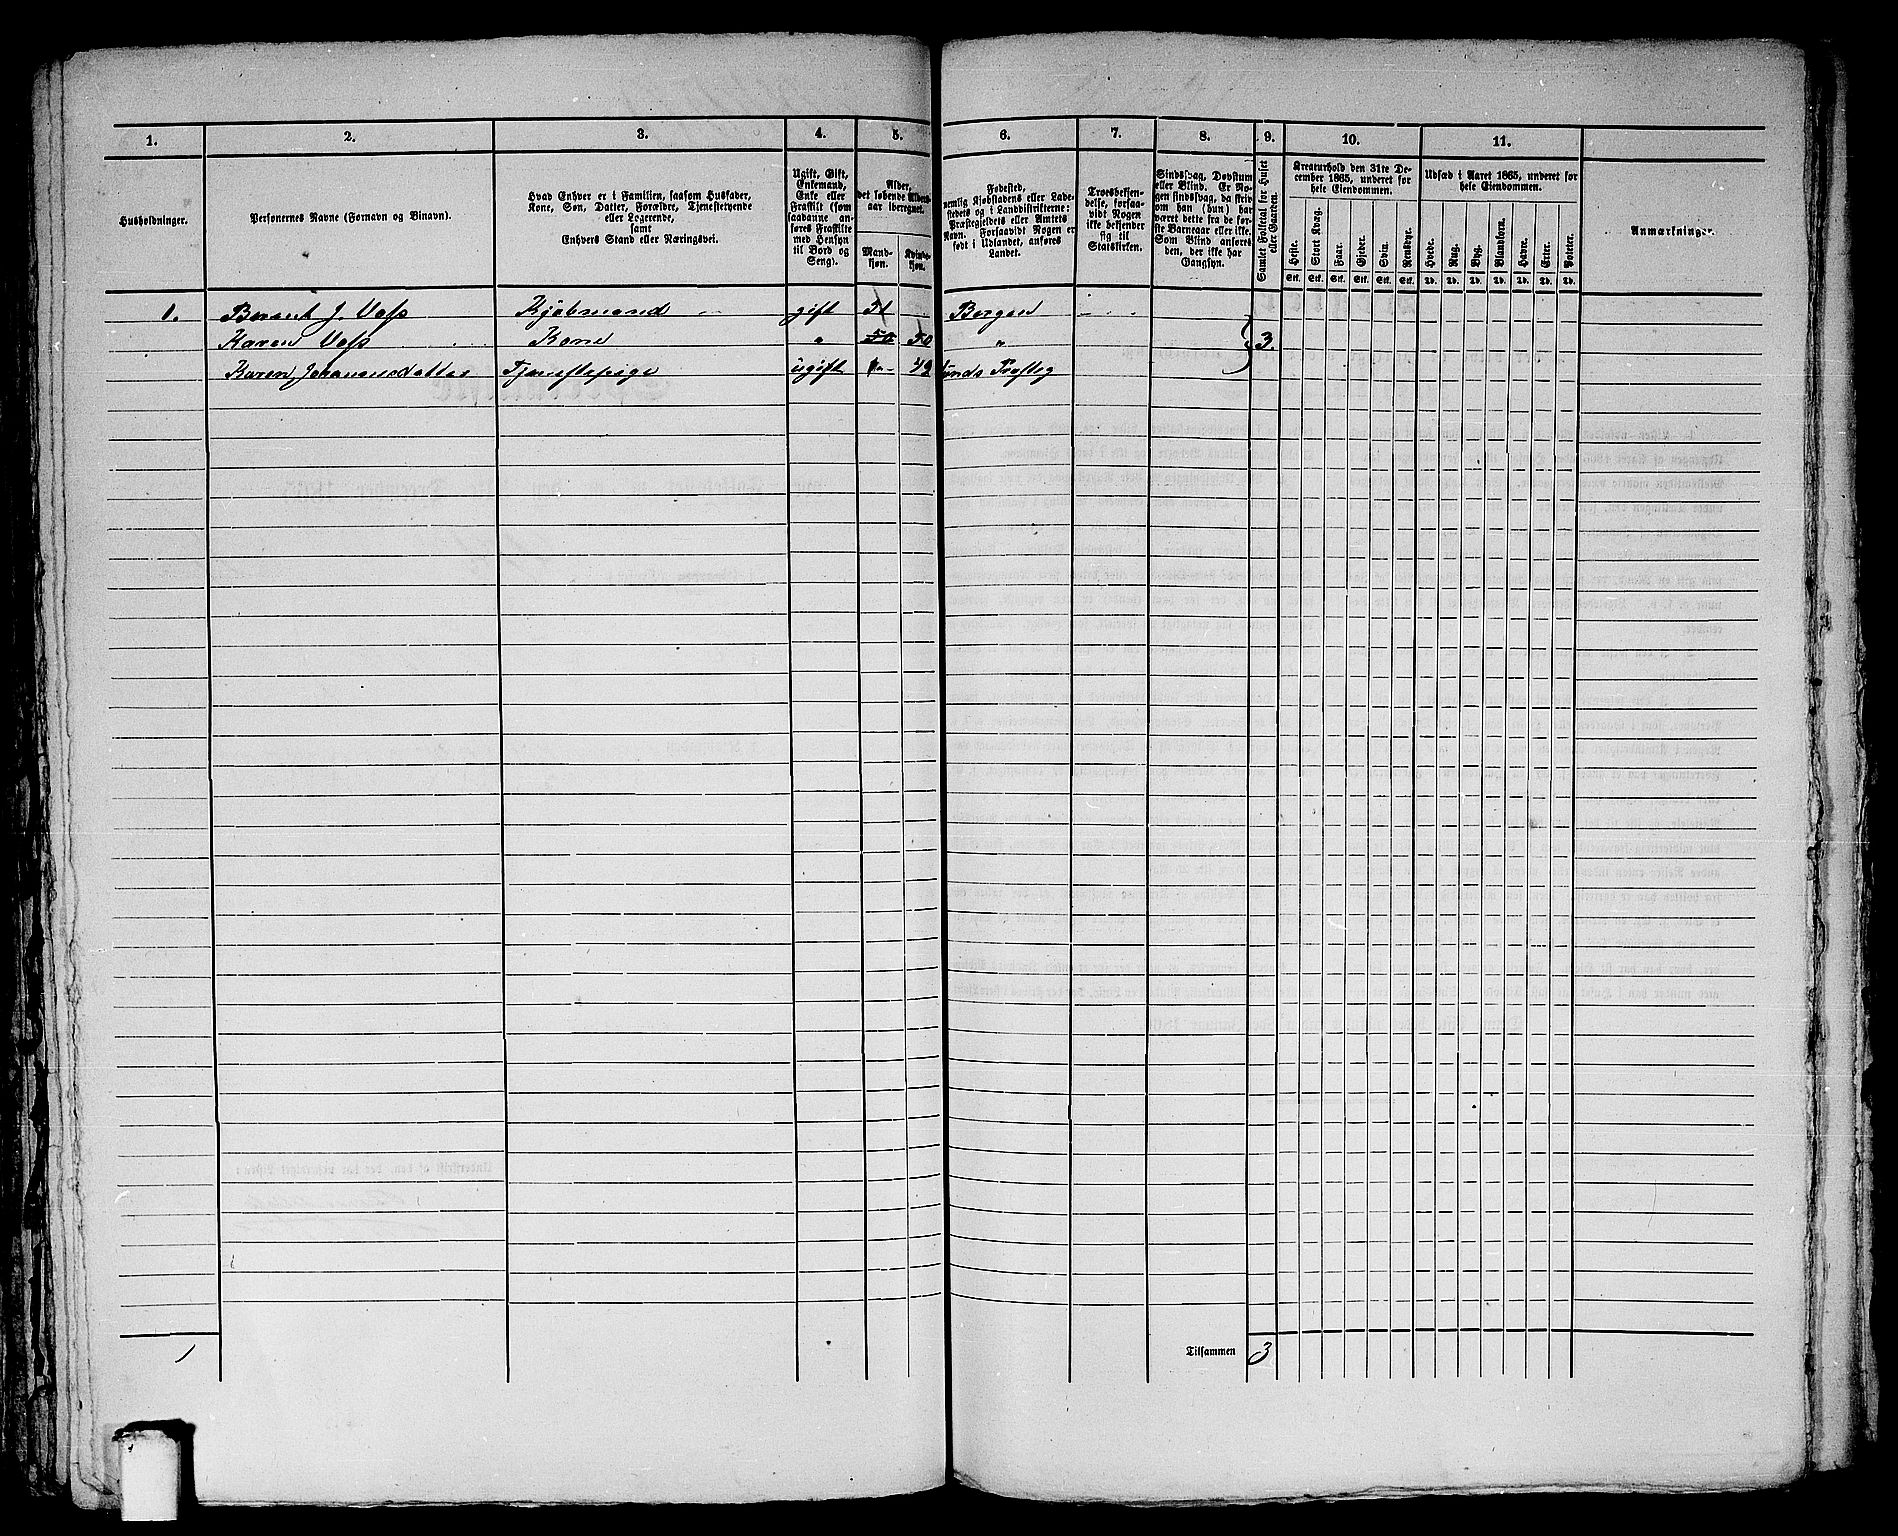 1. 2. 3. 4. 5. 6. 7. 8. 9. 10. 11.
Husholdninger.
Personernes Navne (Fornavn og Binavn).
Hvad Enhver er i Familien, saasom Husfader,
Kone, Søn, Datter, Forældre, Tjenestetyende
eller Logerende,
samt
Enhvers Stand eller Næringsvei.
Ugift, Gift,
Enkemand,
Enke eller
Fraskilt (som
saadanne an-
føres Fraskilte
med Hensyn
til Bord og
Seng).
Alder,
det løbende Alders-
aar iberegnet.
Mand-
kjøn.
Kvinde-
kjøn.
Fødested,
nemlig Kjøbstadens eller Lade-
stedets og i Landdistrikterne:
Præstegjeldets eller Amtets
Navn. Forsaavidt Nogen er
født i Udlandet, anføres
Landet.
Troesbekjen-
delse, forsaa-
vidt Nogen
ikke bekjender
sig til
Statskirken.
Sindssvag, Døvstum
eller Blind. Er No-
gen sindssvag, da skriv
om han (hun) har
været dette fra de før-
ste Barneaar eller ikke.
Som Blind anføres
den, der ikke har
Gangsyn.
Samlet Folketal for Huset
eller Gaarden.
Kreaturhold den 31te De-
cember 1865, underet for
hele Eiendommen.
Heste. Stort Kvæg. Faar. Gjeder. Svin. Rensdyr.
Stk. Stk. Stk. Stk. Stk. Stk.
Udsæd i Aaret 1865, underet for
hele Eiendommen.
Hvede. Rug. Byg. Blandkorn. Havre. Erter. Poteter.
Td. Td. Td. Td. Td. Td. Td.
Anmærkninger.
1. Berent J. Vofs Kjöbmand gift 51 Bergen
Karen Vofs Kone " 50 50 " 3.
Karen Johannesdatter Tjenestepige ugift 42 Lunds Præsteg
1 Tilsammen 3